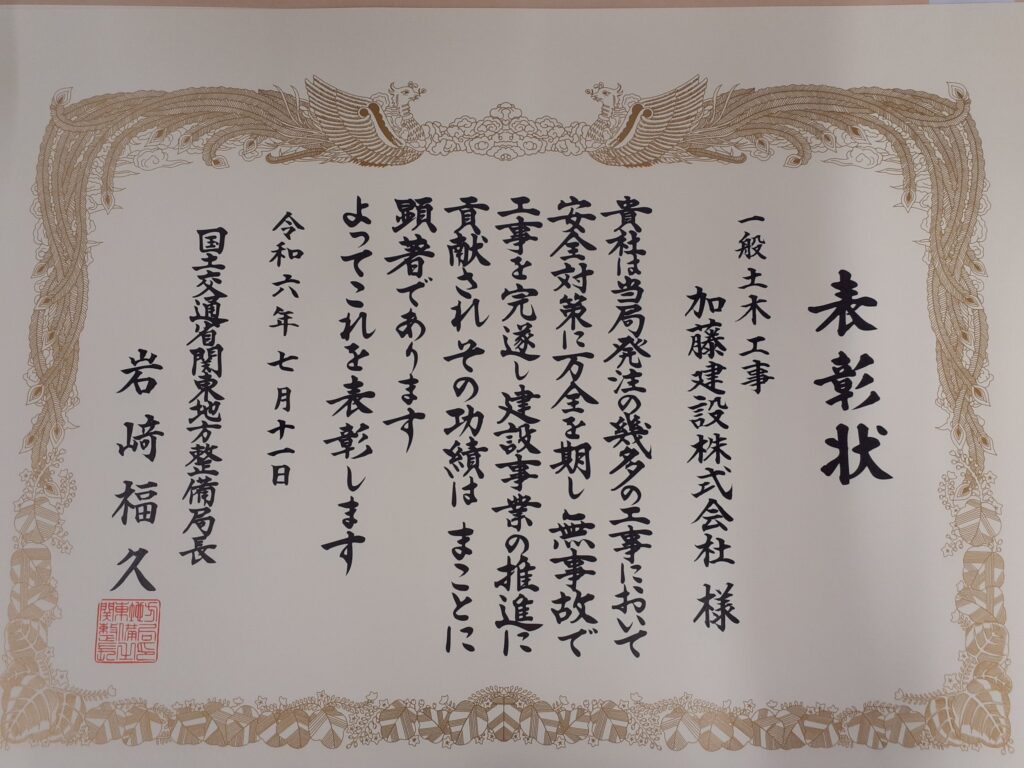 表彰状
一般土木工事
加藤建設株式会社 様
貴社は当局発注の幾多の工事において
安全対策に万全を期し 無事故で
工事を完遂し 建設事業の推進に
貢献され その功績は まことに
顕著であります
よってこれを表彰します
令和六年七月十一日
国土交通省関東地方整備局長
岩﨑福久